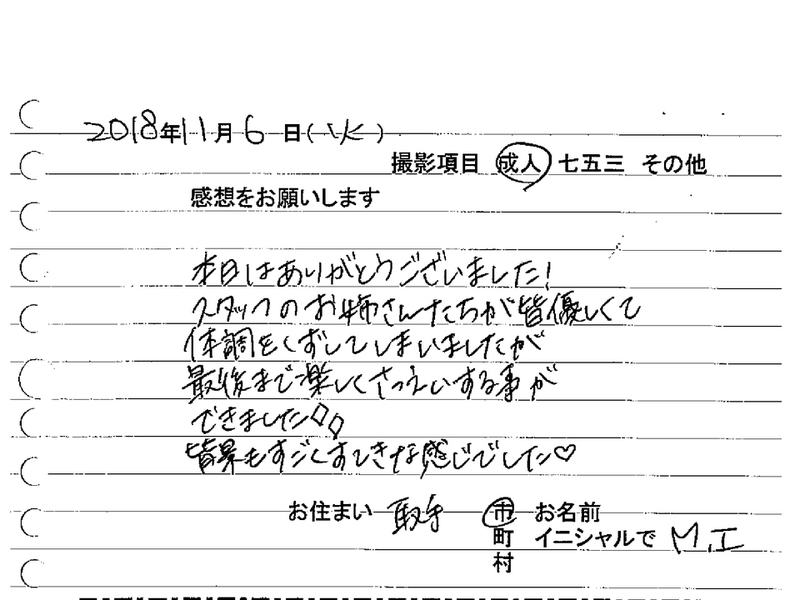 2018年11月6日(火)
撮影項目 成人 七五三 その他
感想をお願いします
本日はありがとうございました!
スタッフのお姉さんたちが皆優しくて
体調をくずしてしまいましたが
最後まで楽しくさつえいする事が
できました◇◇
背景もすごくすてきな感じでした♡
お住まい 取手 市 お名前
町 イニシャルで M.I
村